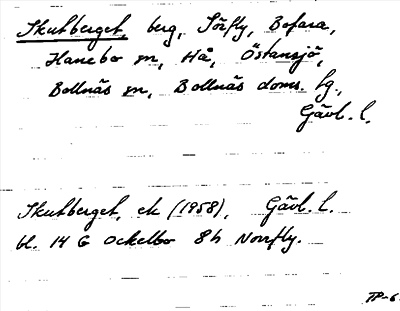 Skutberget, berg, Sörfly, Bofara,
Hanebo sn, Hå, Östansjö,
Bollnäs sn, Bollnäs doms. hg.,
Gävl. l.
Skutberget, ek (1958), Gävl. l.
bl. 14 G Ockelbo 8h Norrfly.
TP-6